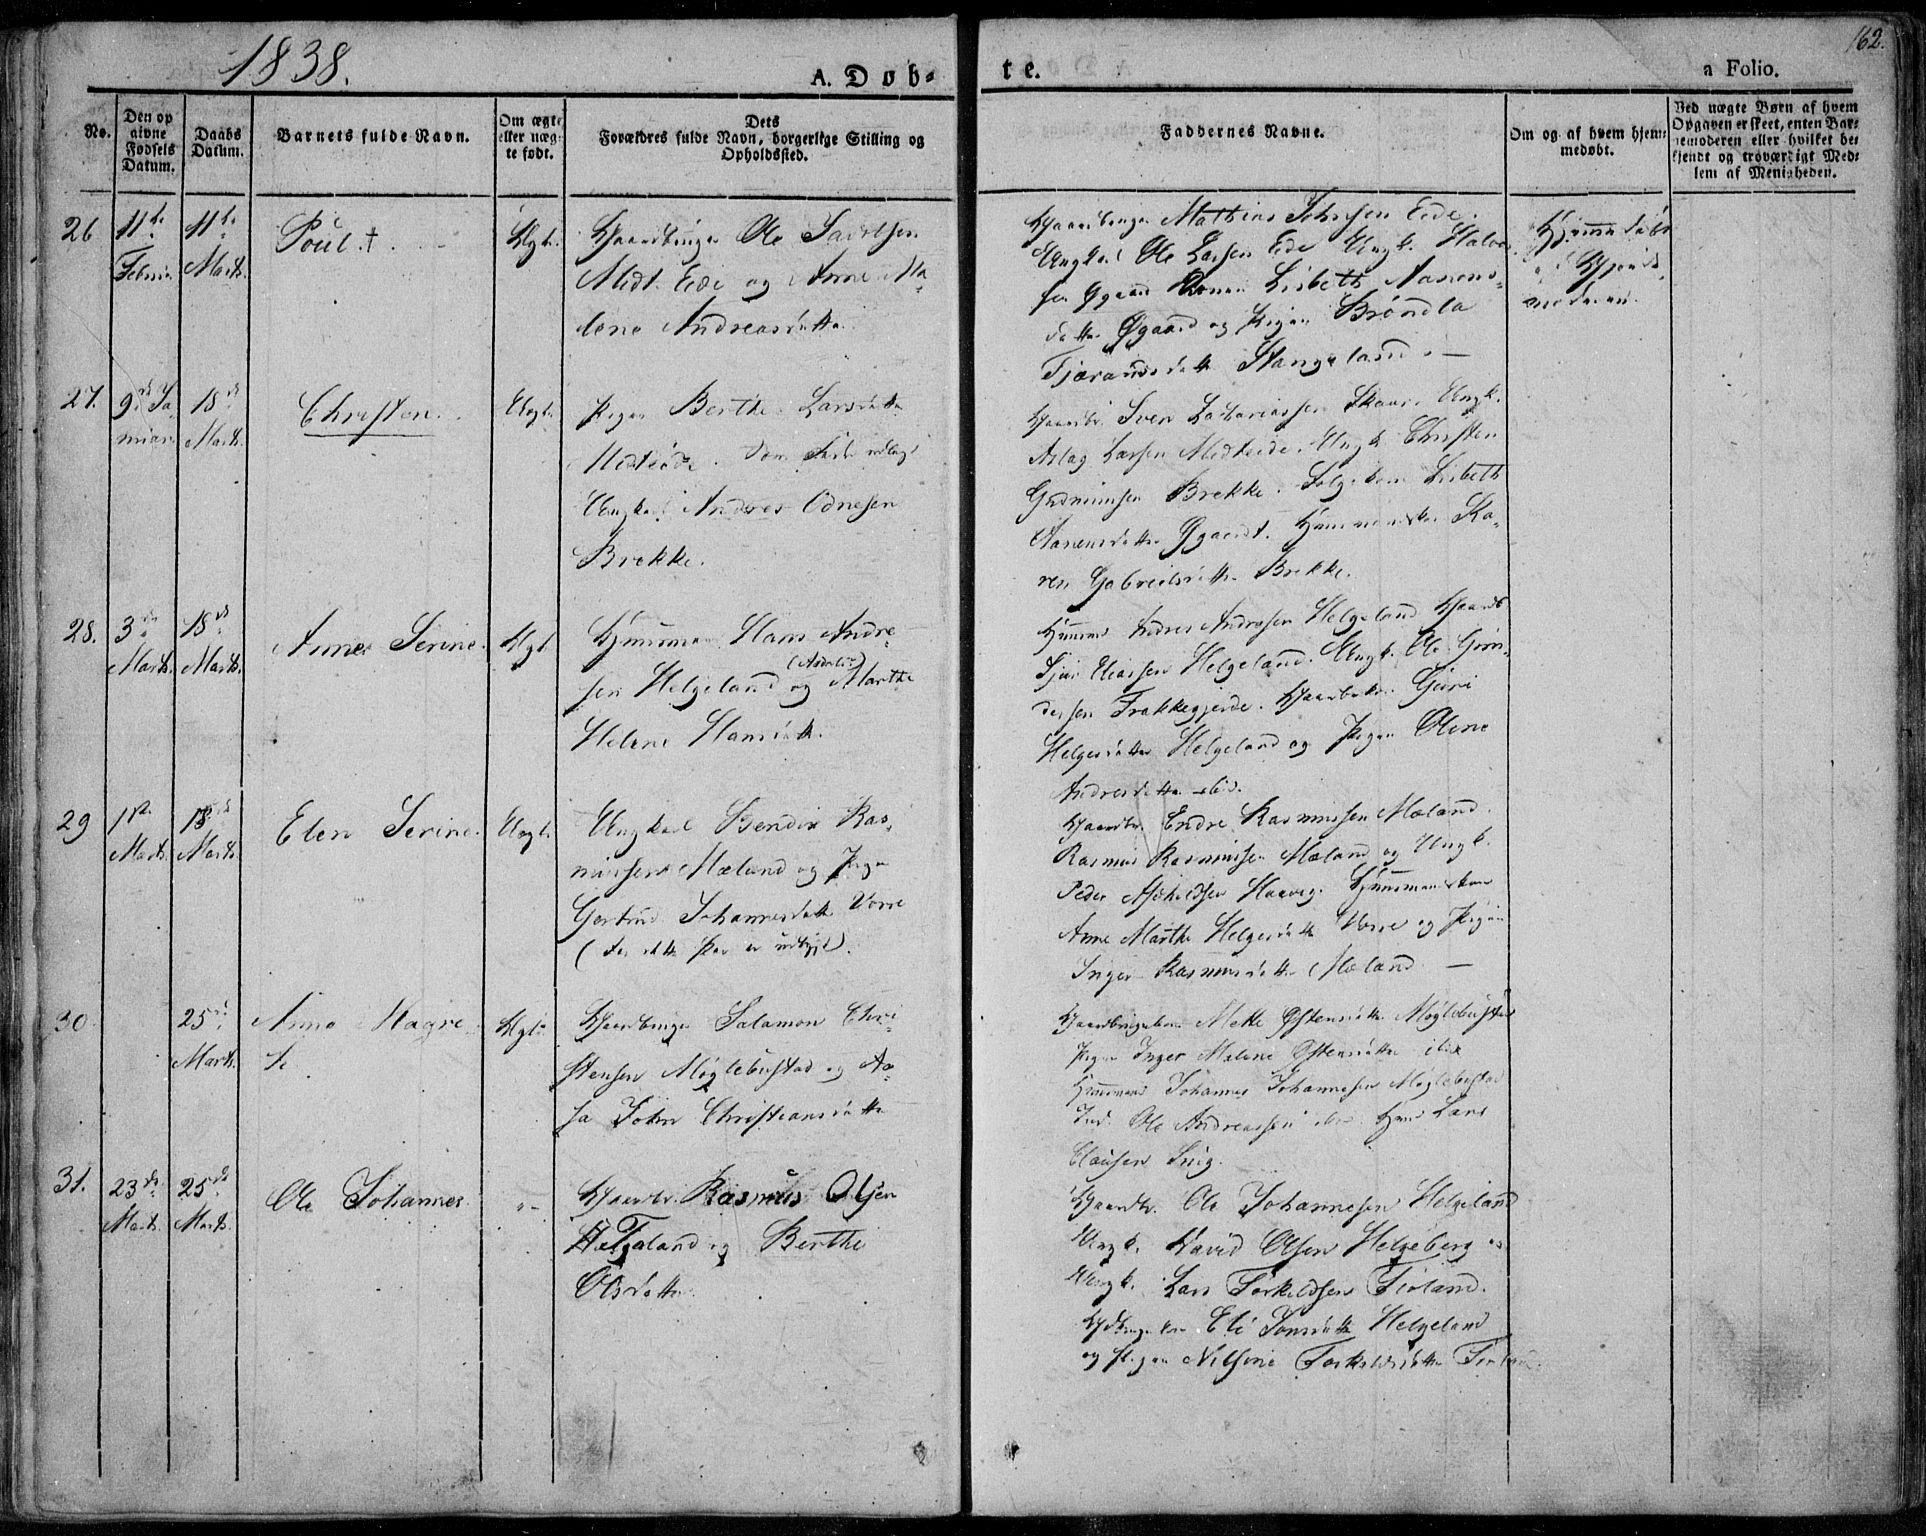 1838.
A. Døb-
te.
162.
a Folio.
No.
Den op
givne
Fødsels
Datum.
Daabs
Datum.
Barnets fulde Navn.
Om ægte
eller uæg-
te født.
Dets
Forældres fulde Navn, borgerlige Stilling og
Opholdssted.
Faddernes Navne.
Om og af hvem hjem-
medøbt.
Ved uægte Børn af hvem
Opgaven er skeet, enten Bar-
nemoderen eller hvilket be-
kjendt og troværdigt Med-
lem af Menigheden.
26
11te
Febru
11te
Marts
Poul. †
Ægt.
Gaardbruger Ole
Midt Eide og Anne Ma-
lene Andreasdatter
Gaardbruger Mathias Johnsen Eide.
Ungkarl Ole Larsen Eide Ungk. Halvor
Øgaard Konen Lisbeth Aanens-
datter Øgaard og Pigen Brønla
Tjærandsdatter Stangeland. —
Hjemmedøbt
af Gjorde-
moderen.
27.
9de Ja-
nuar
18de
Marts
Christen.
Uægt.
Pigen Berthe Larsdatter
Midteide.
Ungkarl Andres Odnesen
Brekke.
Gaardbr. Sven Zachariassen Skaar. Ungk.
Aslag Larsen Midteide. Ungk. Christen
Gudmunsen Brekke. Lisbeth
Aanensdatter Øgaard. Huusmandskone Ka-
ren Gabrielsdatter Brekke.
28.
3de
Marts.
18de
Marts.
Anne Serine.
Ægt.
Huusmand Hans Andre-
sen Helgeland og Marthe
Helene Hansdatter.
Huusmd Andres Andresen Helgeland Gaardb
Sjur Eliassen Helgeland. Ungk. Ole
Frakkegjerde. Guri
Helgesdatter Helgeland og Pigen Olene
Andresdatter ibid.
29
1ste
Marts.
18de
Marts.
Elen Serine.
Uægt.
Ungkarl Bendix Ras-
mussen Mæland og Pigen
Gertrud Johannesdatter Vorre
Gaardbr. Endre Rasmussen Mæland.
Rasmus Rasmussen Mæland og Ungk.
Peder Haaveg. Huusmandskone
Anne Marthe Helgesdatter Vorre og Pigen
Inger Rasmusdatter Mæland —
30
25de
Marts.
Anne Magre-
te
Ægt.
Gaardbruger Salamon Chri-
stensen Møglebustad og Aa-
sa John Christiansdatter
Gaardbrugerkone Mette Østensdatter Møglebustad
Pigen Inger Malene Østensdatter ibid
Huusmand Johannes Johannesen Møglebustad
Ind. Ole Andreassen Lars
Clausen
31.
23de
Marts.
25de
Marts.
Ole Johannes
"
Gaardbr. Rasmus Olsen
Helgeland og Berthe
Olsdatter
Gaardbr. Ole Johannesen Helgeland
Ungk. David Olsen Helgeberg og
Ungk. Lars Torkildsen
Eli Jonsdatter Helgeland
og Pigen Nilsine Torkildsdatter